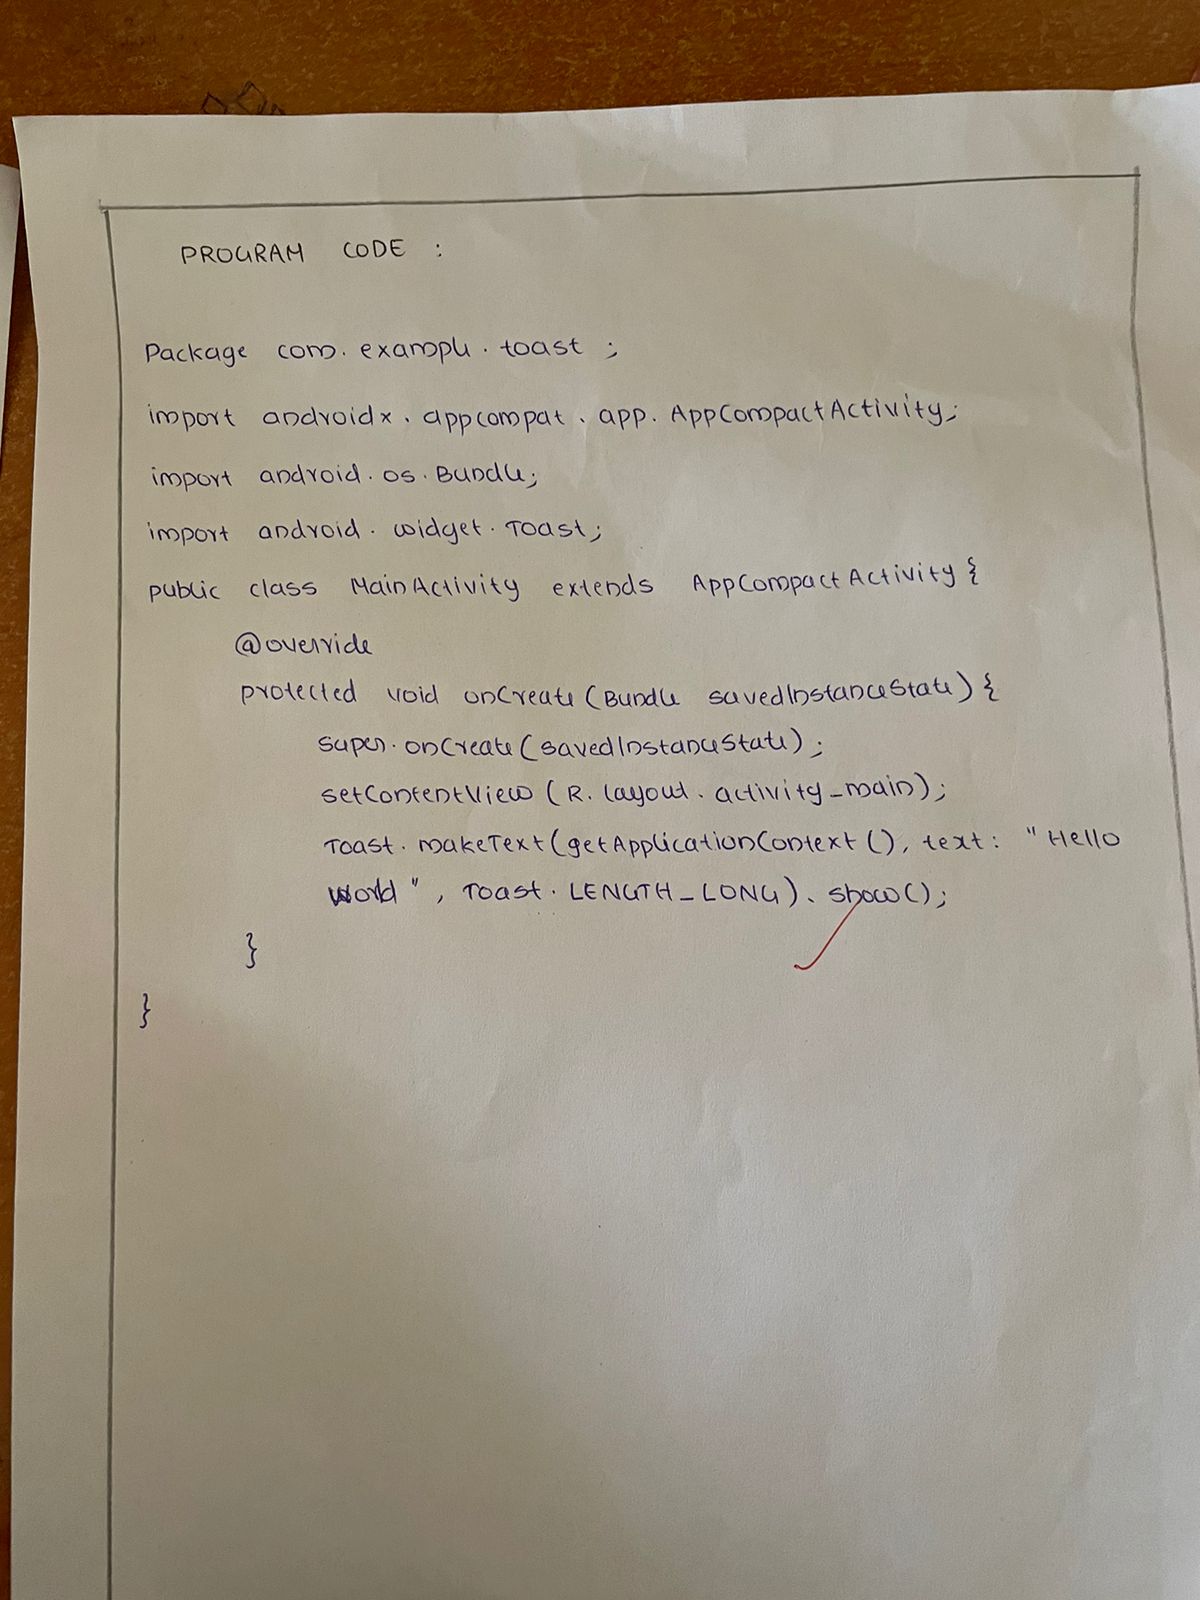 PROGRAM CODE :
Package com.example.toast ;
import androidx.appcompat.app.AppCompactActivity;
import android.os.Bundle;
import android.widget.Toast;
public class MainActivity extends AppCompactActivity {
@override
protected void onCreate(Bundle savedInstanceState) {
super.onCreate(savedInstanceState);
setContentView (R.layout.activity_main);
Toast.makeText(getApplicationContext(), text: "Hello
world", Toast.LENGTH_LONG).show();
}
}